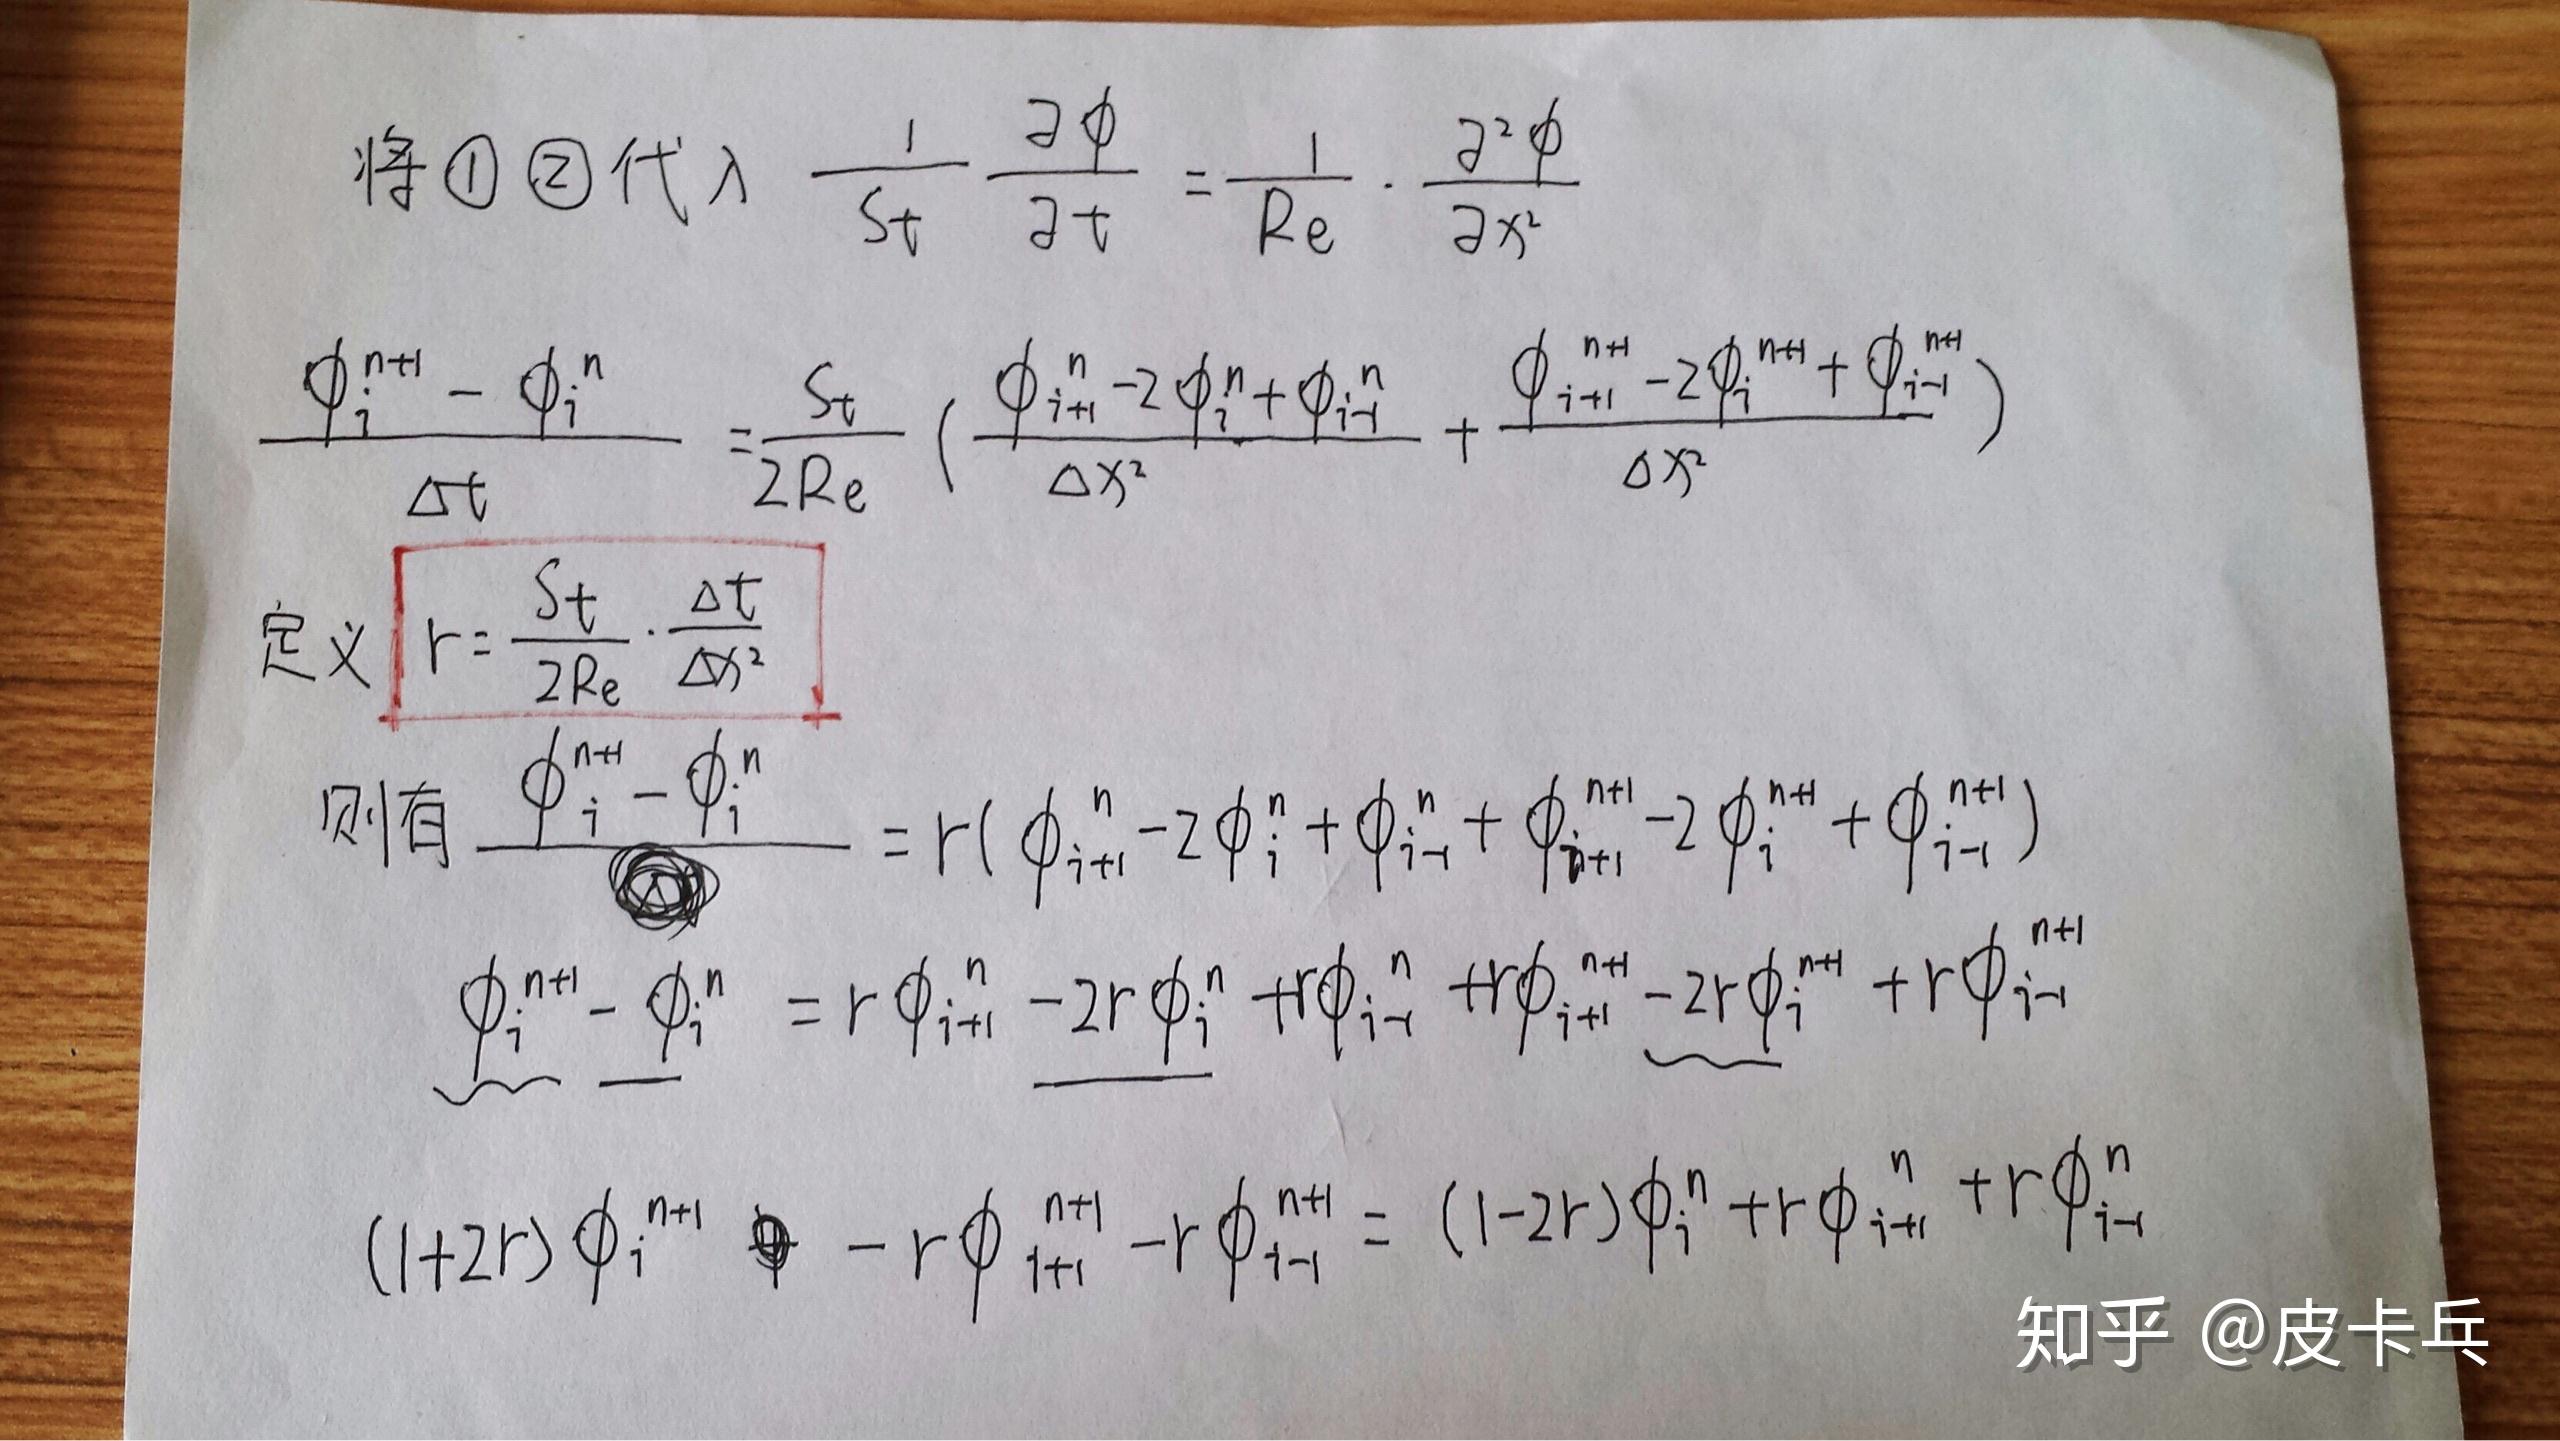 将①②代入 \frac{1}{St} \frac{∂φ}{∂t} = \frac{1}{Re} · \frac{∂²φ}{∂x²}
\frac{φ_i^{n+1} - φ_i^n}{Δt} = \frac{St}{2Re} ( \frac{φ_{i+1}^n - 2φ_i^n + φ_{i-1}^n}{Δx²} + \frac{φ_{i+1}^{n+1} - 2φ_i^{n+1} + φ_{i-1}^{n+1}}{Δx²} )
定义 r = \frac{St}{2Re} · \frac{Δt}{Δx²}
则有 φ_i^{n+1} - φ_i^n = r( φ_{i+1}^n - 2φ_i^n + φ_{i-1}^n + φ_{i+1}^{n+1} - 2φ_i^{n+1} + φ_{i-1}^{n+1} )
φ_i^{n+1} - φ_i^n = rφ_{i+1}^n - 2rφ_i^n + rφ_{i-1}^n + rφ_{i+1}^{n+1} - 2rφ_i^{n+1} + rφ_{i-1}^{n+1}
(1+2r)φ_i^{n+1} - rφ_{i+1}^{n+1} - rφ_{i-1}^{n+1} = (1-2r)φ_i^n + rφ_{i+1}^n + rφ_{i-1}^n
知乎 @皮卡兵